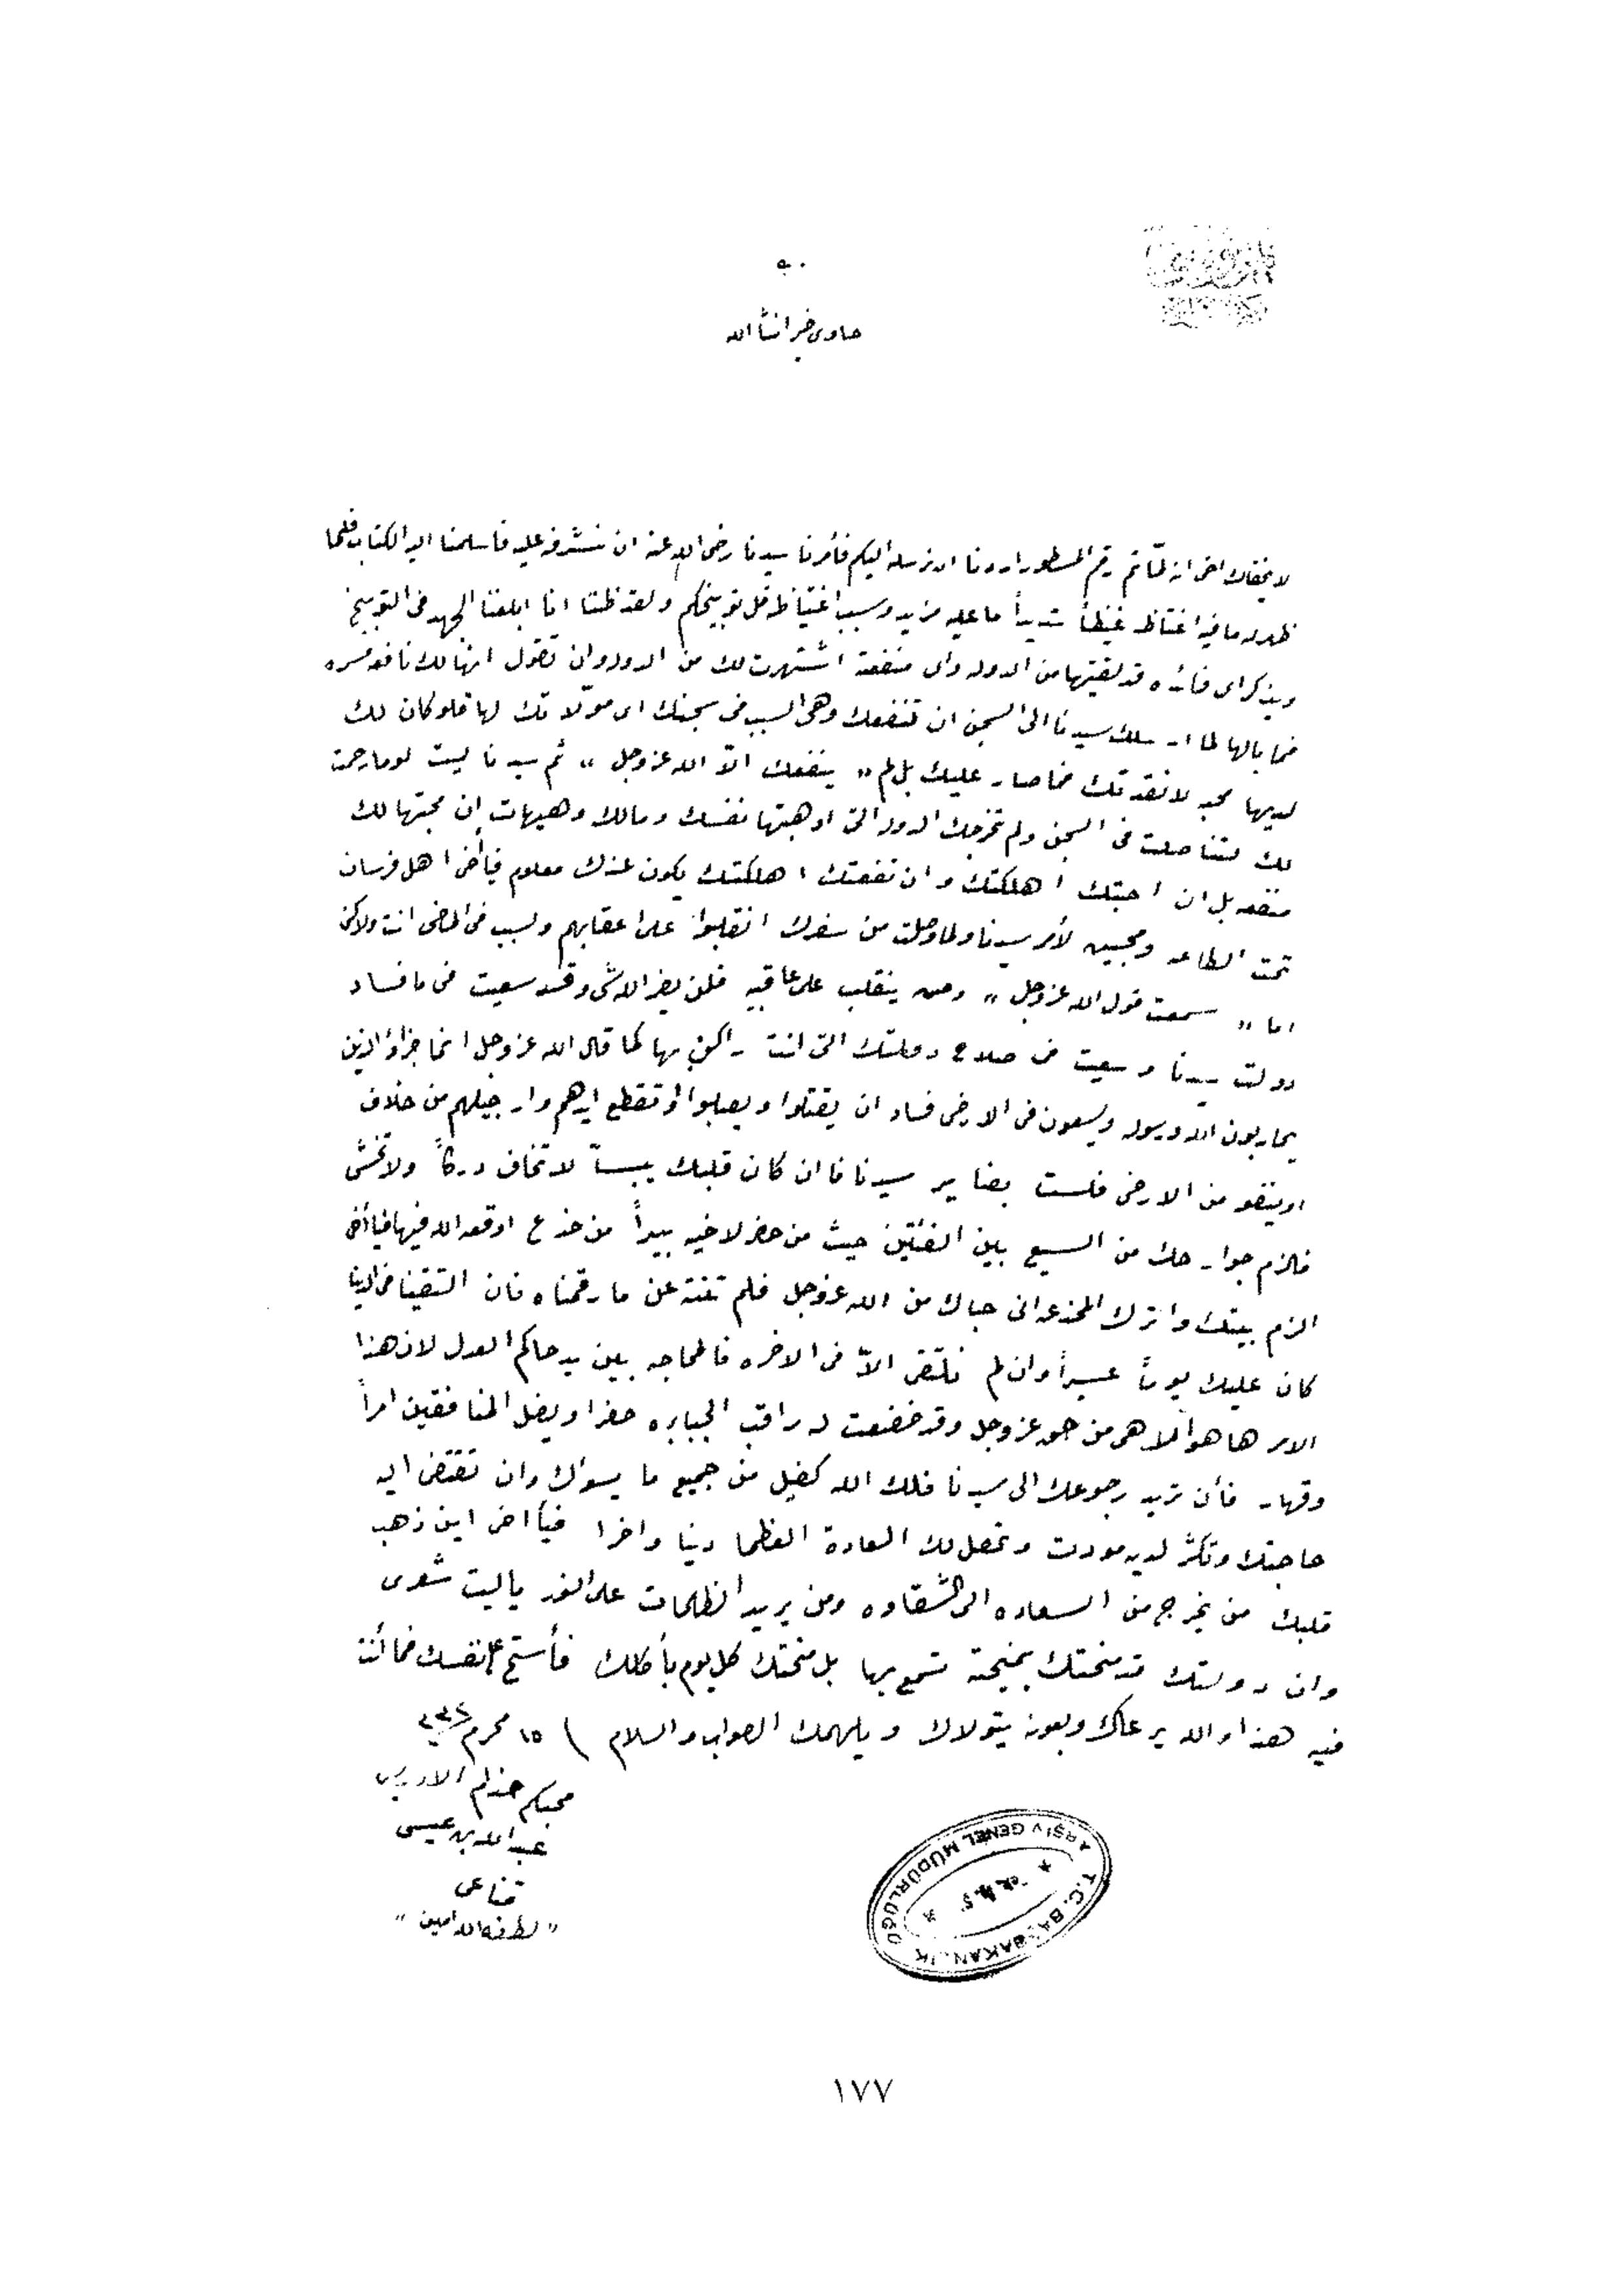 حاوى خير انشأ الله
لا يخفاك اخى انه لمّا تم رقم المسطور اردنا ان نرسله اليكم فأمرنا سيدنا رضى الله عنه ان نشرفه عليه فأسلمنا اليه الكتاب فلما
ظهر له ما فيه اغتاظ غيظاً شديداً ما عليه مزيد وسبب اغتياظه قل توبيخكم ولقد ظننا انا ابلغنا الجهد فى التوبيخ
ويذكر اى فائده قد لقيتها من الدوله واى منفعة اشتهرت لك من الدوله وان تقول انها لك نافعه
فما بالها لما ارسلك سيدنا الى السجن ان تنفعك وهى السبب فى سجنك اى موالاتك لها فلو كان لك
لديها محبه لانقذتك مما صار عليك بل لم " ينفعك الاّ الله عز وجل " ثم سيدنا ليت لو ما رحمة
لك فى السجن ولم تخرجك الدوله التى اوهبتها نفسك ومالك وهيهات إن محبتها لك
منفعه بل ان احبتك اهلكتك وان نفعتك اهلكتك يكون عندك معلوم فيأخى اهل فرسان
تحت الطاعه ومجيبين لأمر سيدنا ولما وصلت من سفرك انقلبوا على اعقابهم والسبب فى الماضى انت ولاكن
اما " سمعت قول الله عز وجل " ومن ينقلب على عاقبيه فلن يضر الله شى وقد سعيت فى ما فساد
دولت سيدنا وسعيت فى صلاح دولتك التى انت راكن بها كما قال الله عز وجل انما جزاؤ الذين
يحاربون الله ورسوله ويسعون فى الارض فساد ان يقتلوا ويصلبوا أو تقطع ايدهم وارجلهم من خلاف
او ينفو من الارض فلست بضاير سيدنا فان كان قلبك يبساً لا تخاف دركاً ولا تخشى
فالزم جوارحك من السيع بين الفئتين حيث من حفر لاخيه بيراً من خدع اوقعه الله فيها فيأخى
الزم بيتك واترك المخدعه انى حباك من الله عز وجل فلم تنته عن ما رقمناه فان التقينا فى الدنيا
كان عليك يوماً عسيراً وان لم نلتقى الاّ فى الاخره فالمحاجه بين يد حاكم العدل لان هذا
الامر ما هو الاّ هى من حق عز وجل وقد خضعت له الجبابره ويضل المنافقين امراً
وقهار فأن تريد رجوعك الى سيدنا فلك الله كفيل من جميع ما يسؤك وان تقتضى اليه
حاجتك وتكثر لديه مودت وتحصل لك السعادة العظما دنيا واخرا فيأاخى اين ذهب
قلبك من يخرج من السعاده الى الشقاوه ومن يريد الظلمات على النور يا ليت شعرى
وان دولتك قد منحتك بمنيحة تسمع بها بل منحتك كل يوم بأكلك فأستح على نفسك فما أنت
فيه هذا والله يرعاك وبعونه يتولاك ويلهمك الصواب والسلام ١٥ محرم
محبكم خدام الادريسى
عبد الله بن عيسى
قناعى
" لطف الله امين "
T.C. BAŞBAKANLIK
ARŞİV GENEL MÜDÜRLÜĞÜ
١٧٧